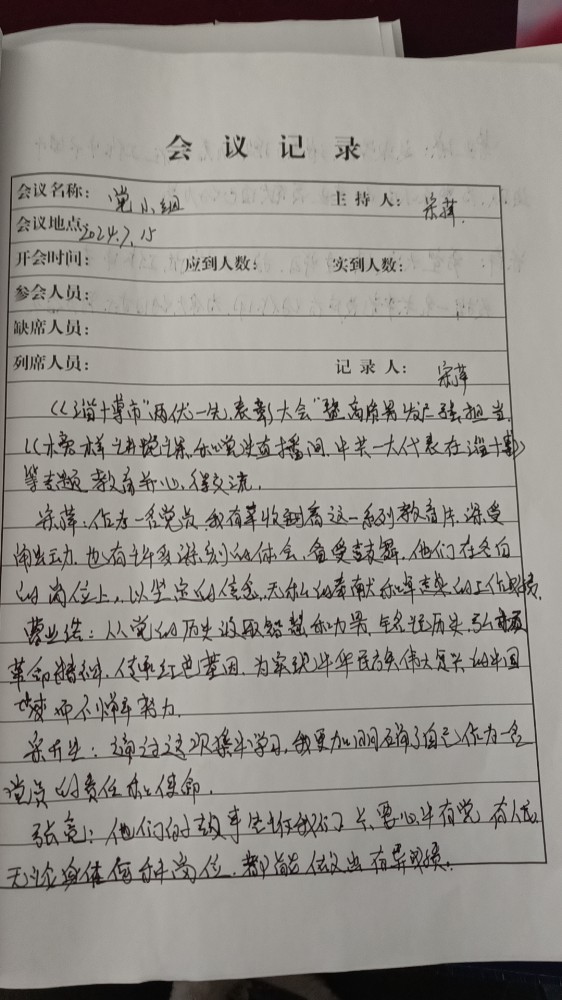 会议记录
会议名称： 党小组 主持人： 宋萍
会议地点： 2024.7.15
开会时间： 应到人数： 实到人数：
参会人员：
缺席人员：
列席人员： 记录人： 宋萍
《淄博市"两优一先"表彰大会"暨高质量发展 担当
榜样 课 和党史直播间，中共一大代表在淄博》
等专题教育并心得交流.
宋萍：作为一名党员，我有幸收到看这一系列教育片，深受
触动，也有许多深刻的体会，备受鼓舞，他们在各自
的岗位上，以坚定的信念，无私的奉献和卓越的工作业绩.
：从党的历史汲取智慧和力量，铭记历史，弘扬
革命精神，传承红色基因，为实现中华民族伟大复兴的中国
梦而不懈努力.
宋 ：通过这次集中学习，我更加明确了自己作为一名
党员的责任和使命.
张亮：他们的故事告诉我们，只要心中有党，有人民
无论身在何种岗位，都能做出有 业绩.